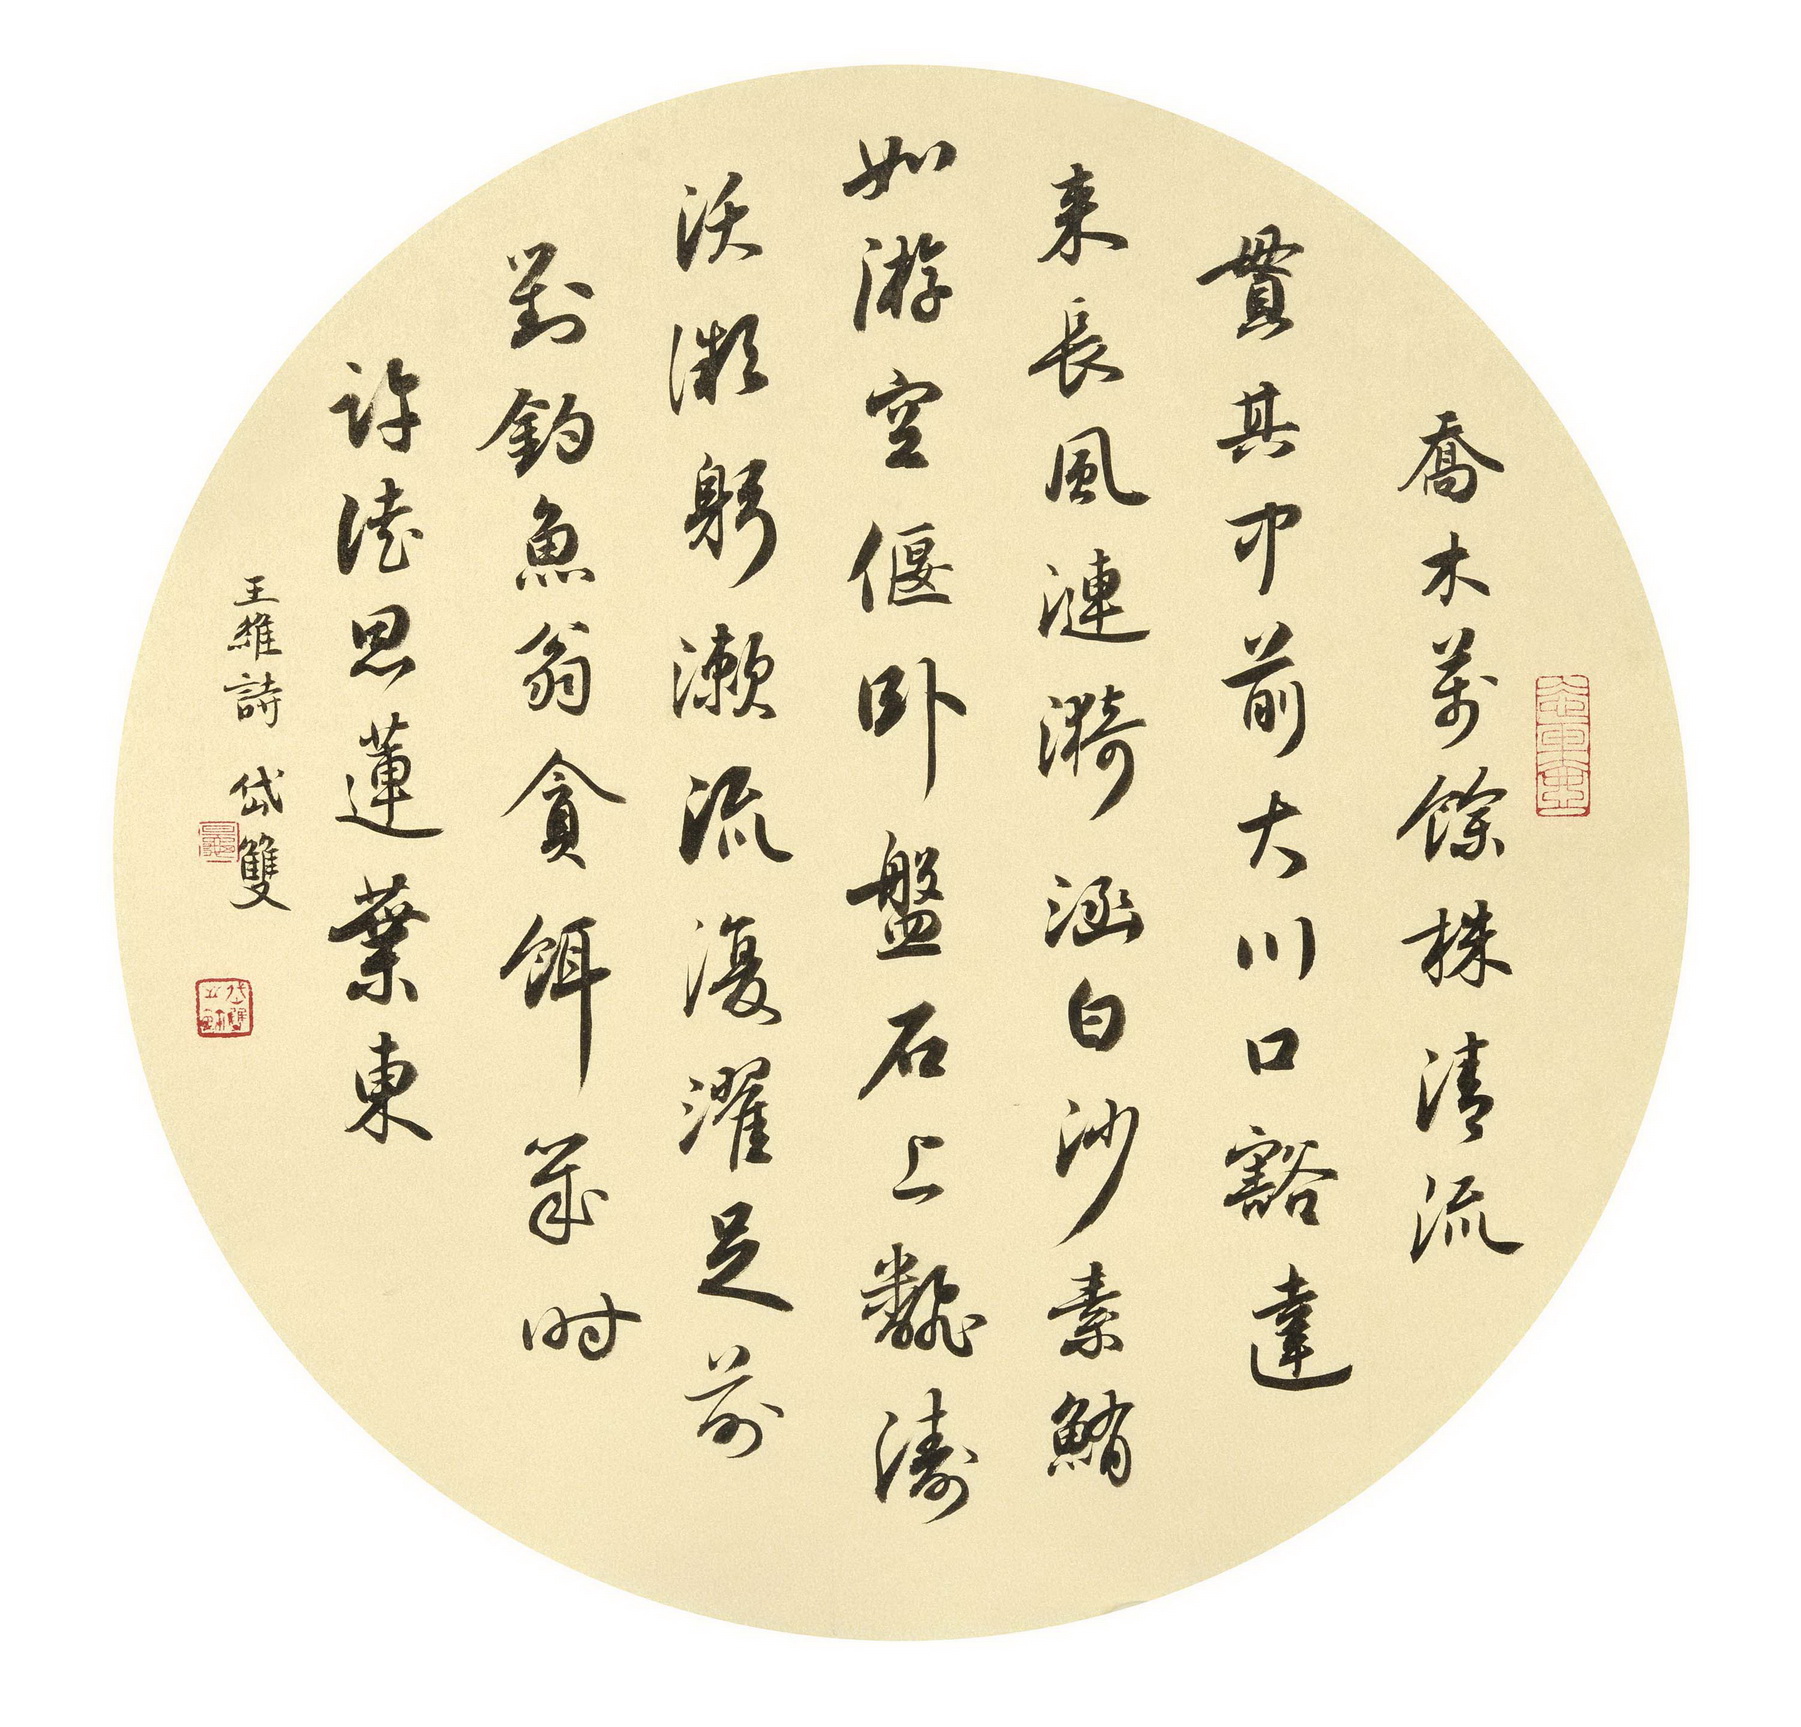 喬木萬餘株清流
貫其中前大川口豁達
来長風漣漪涵白沙素鮪
如游空偃卧盤石上翻濤
沃微躬漱流復濯足前
對釣魚翁貪餌幾时
許徒思蓮葉東
王維詩 岱雙